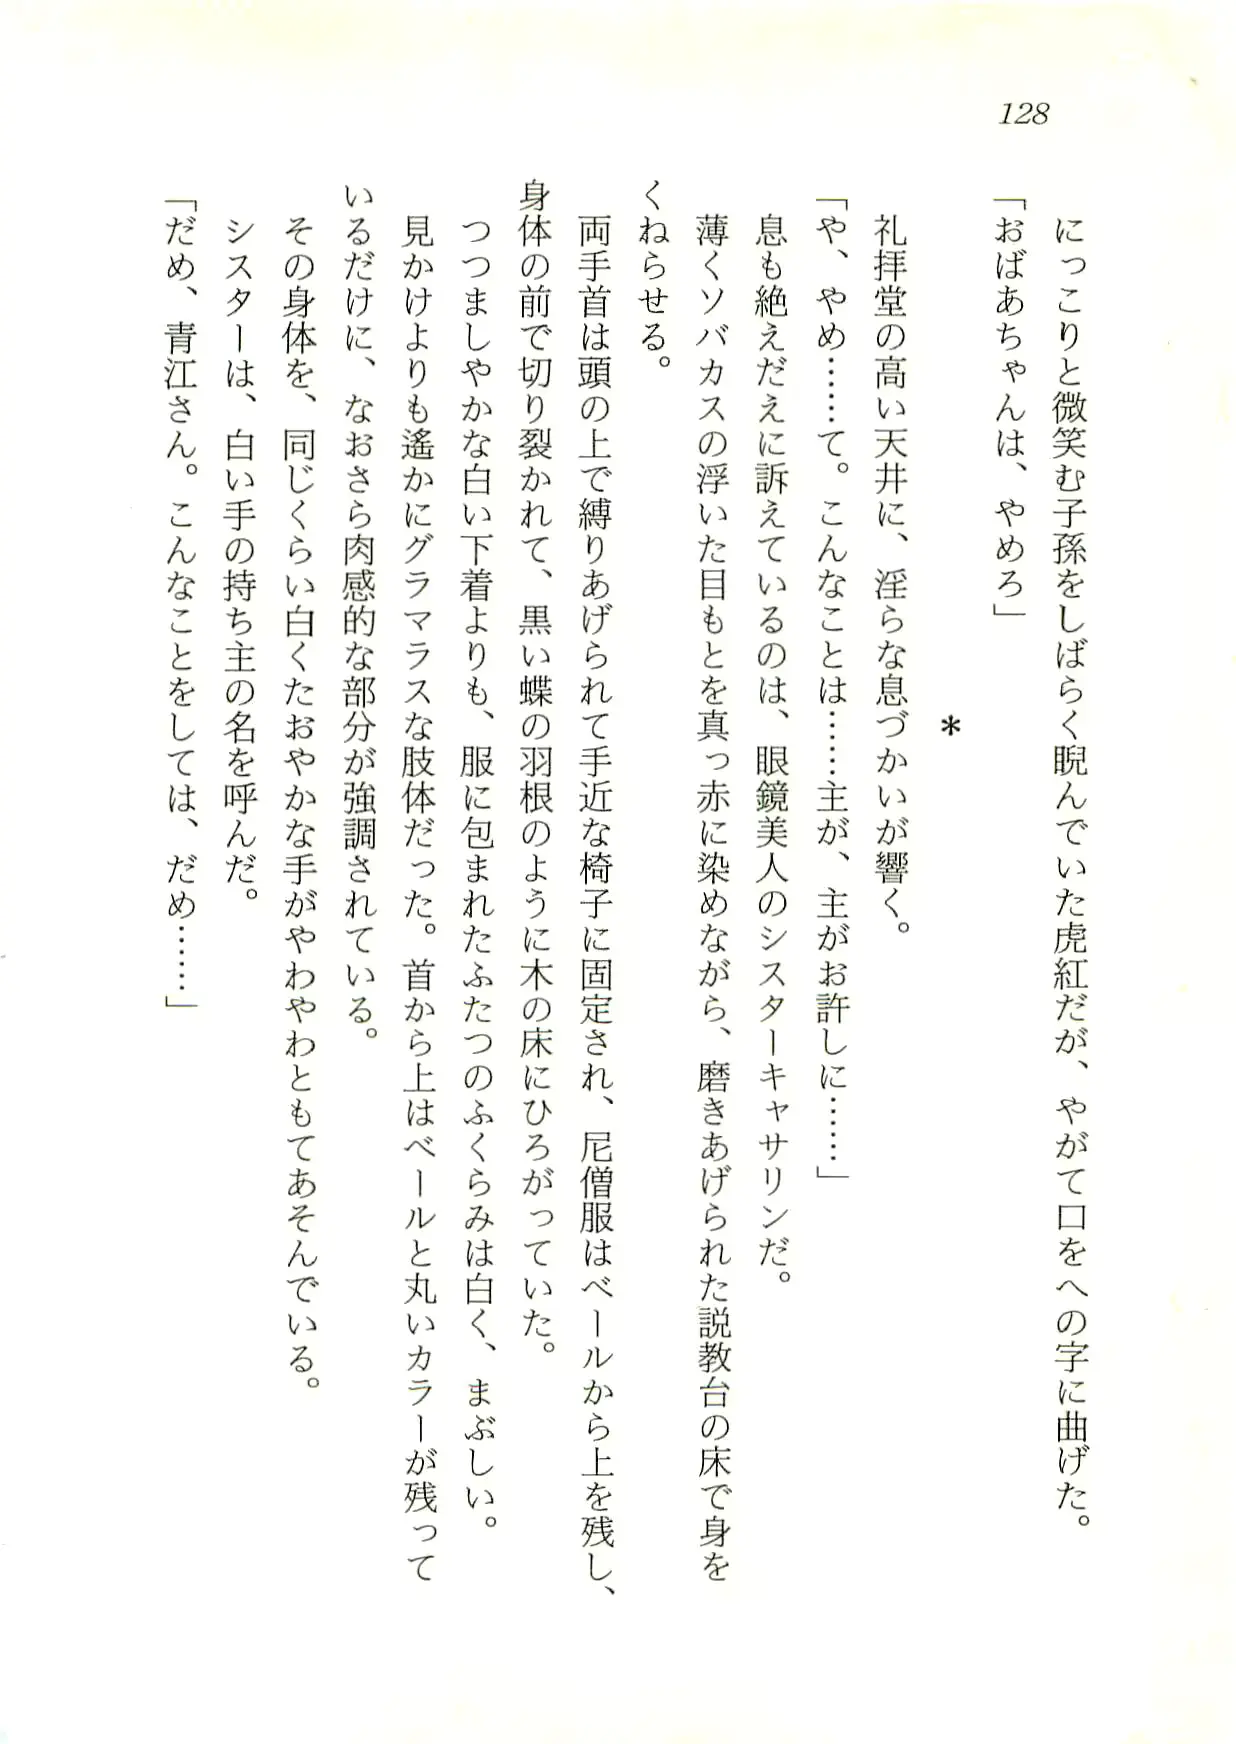 128
にっこりと微笑む子孫をしばらく睨んでいた虎紅だが、やがて口をへの字に曲げた。
「おばあちゃんは、やめろ」
＊
礼拝堂の高い天井に、淫らな息づかいが響く。
「や、やめ……て。こんなことは……主が、主がお許しに……」
息も絶えだえに訴えているのは、眼鏡美人のシスターキャサリンだ。
薄くソバカスの浮いた目もとを真っ赤に染めながら、磨きあげられた説教台の床で身を
くねらせる。
両手首は頭の上で縛りあげられて手近な椅子に固定され、尼僧服はベールから上を残し、
身体の前で切り裂かれて、黒い蝶の羽根のように木の床にひろがっていた。
つつましやかな白い下着よりも、服に包まれたふたつのふくらみは白く、まぶしい。
見かけよりも遙かにグラマラスな肢体だった。首から上はベールと丸いカラーが残って
いるだけに、なおさら肉感的な部分が強調されている。
その身体を、同じくらい白くたおやかな手がやわやわともてあそんでいる。
シスターは、白い手の持ち主の名を呼んだ。
「だめ、青江さん。こんなことをしては、だめ……」